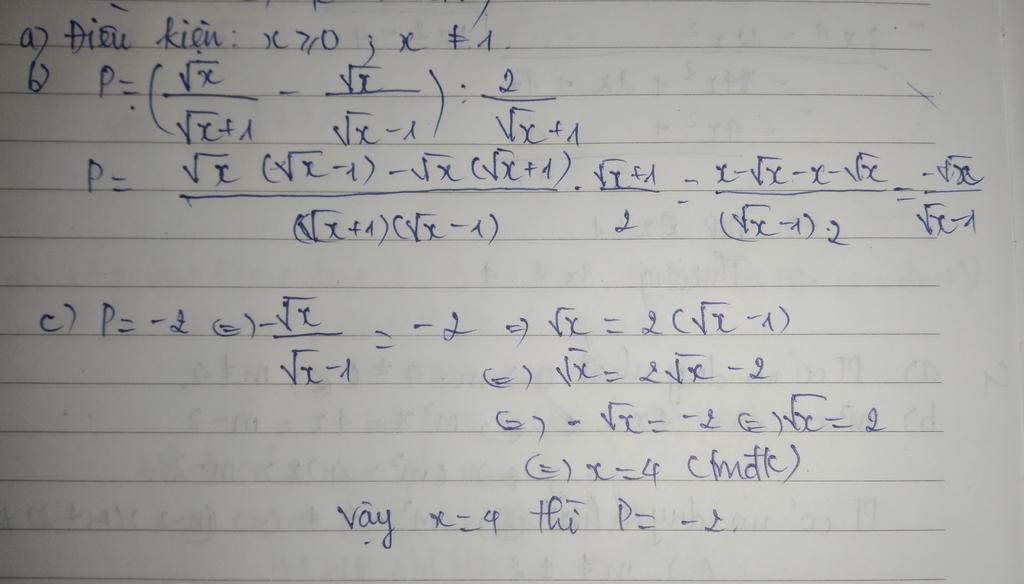 a) Điều kiện: x ≥ 0 ; x ≠ 1.
b) P = (√x/(√x+1) - √x/(√x-1)) : 2/(√x+1)
P = (√x (√x-1) - √x (√x+1))/((√x+1)(√x-1)) . (√x+1)/2 = (x-√x-x-√x)/((√x-1).2) = -√x/(√x-1)
c) P = -2 (=) -√x/(√x-1) = -2 => √x = 2(√x-1)
(=) √x = 2√x - 2
(=) -√x = -2 (=) √x = 2
(=) x = 4 (tmđk).
Vậy x=4 thì P = -2.